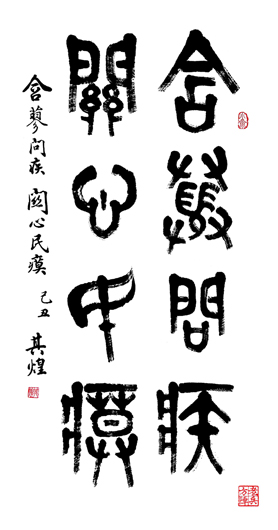 含蓼問疾
關心民瘼
含蓼问疾 関心民瘼 己丑 其煌